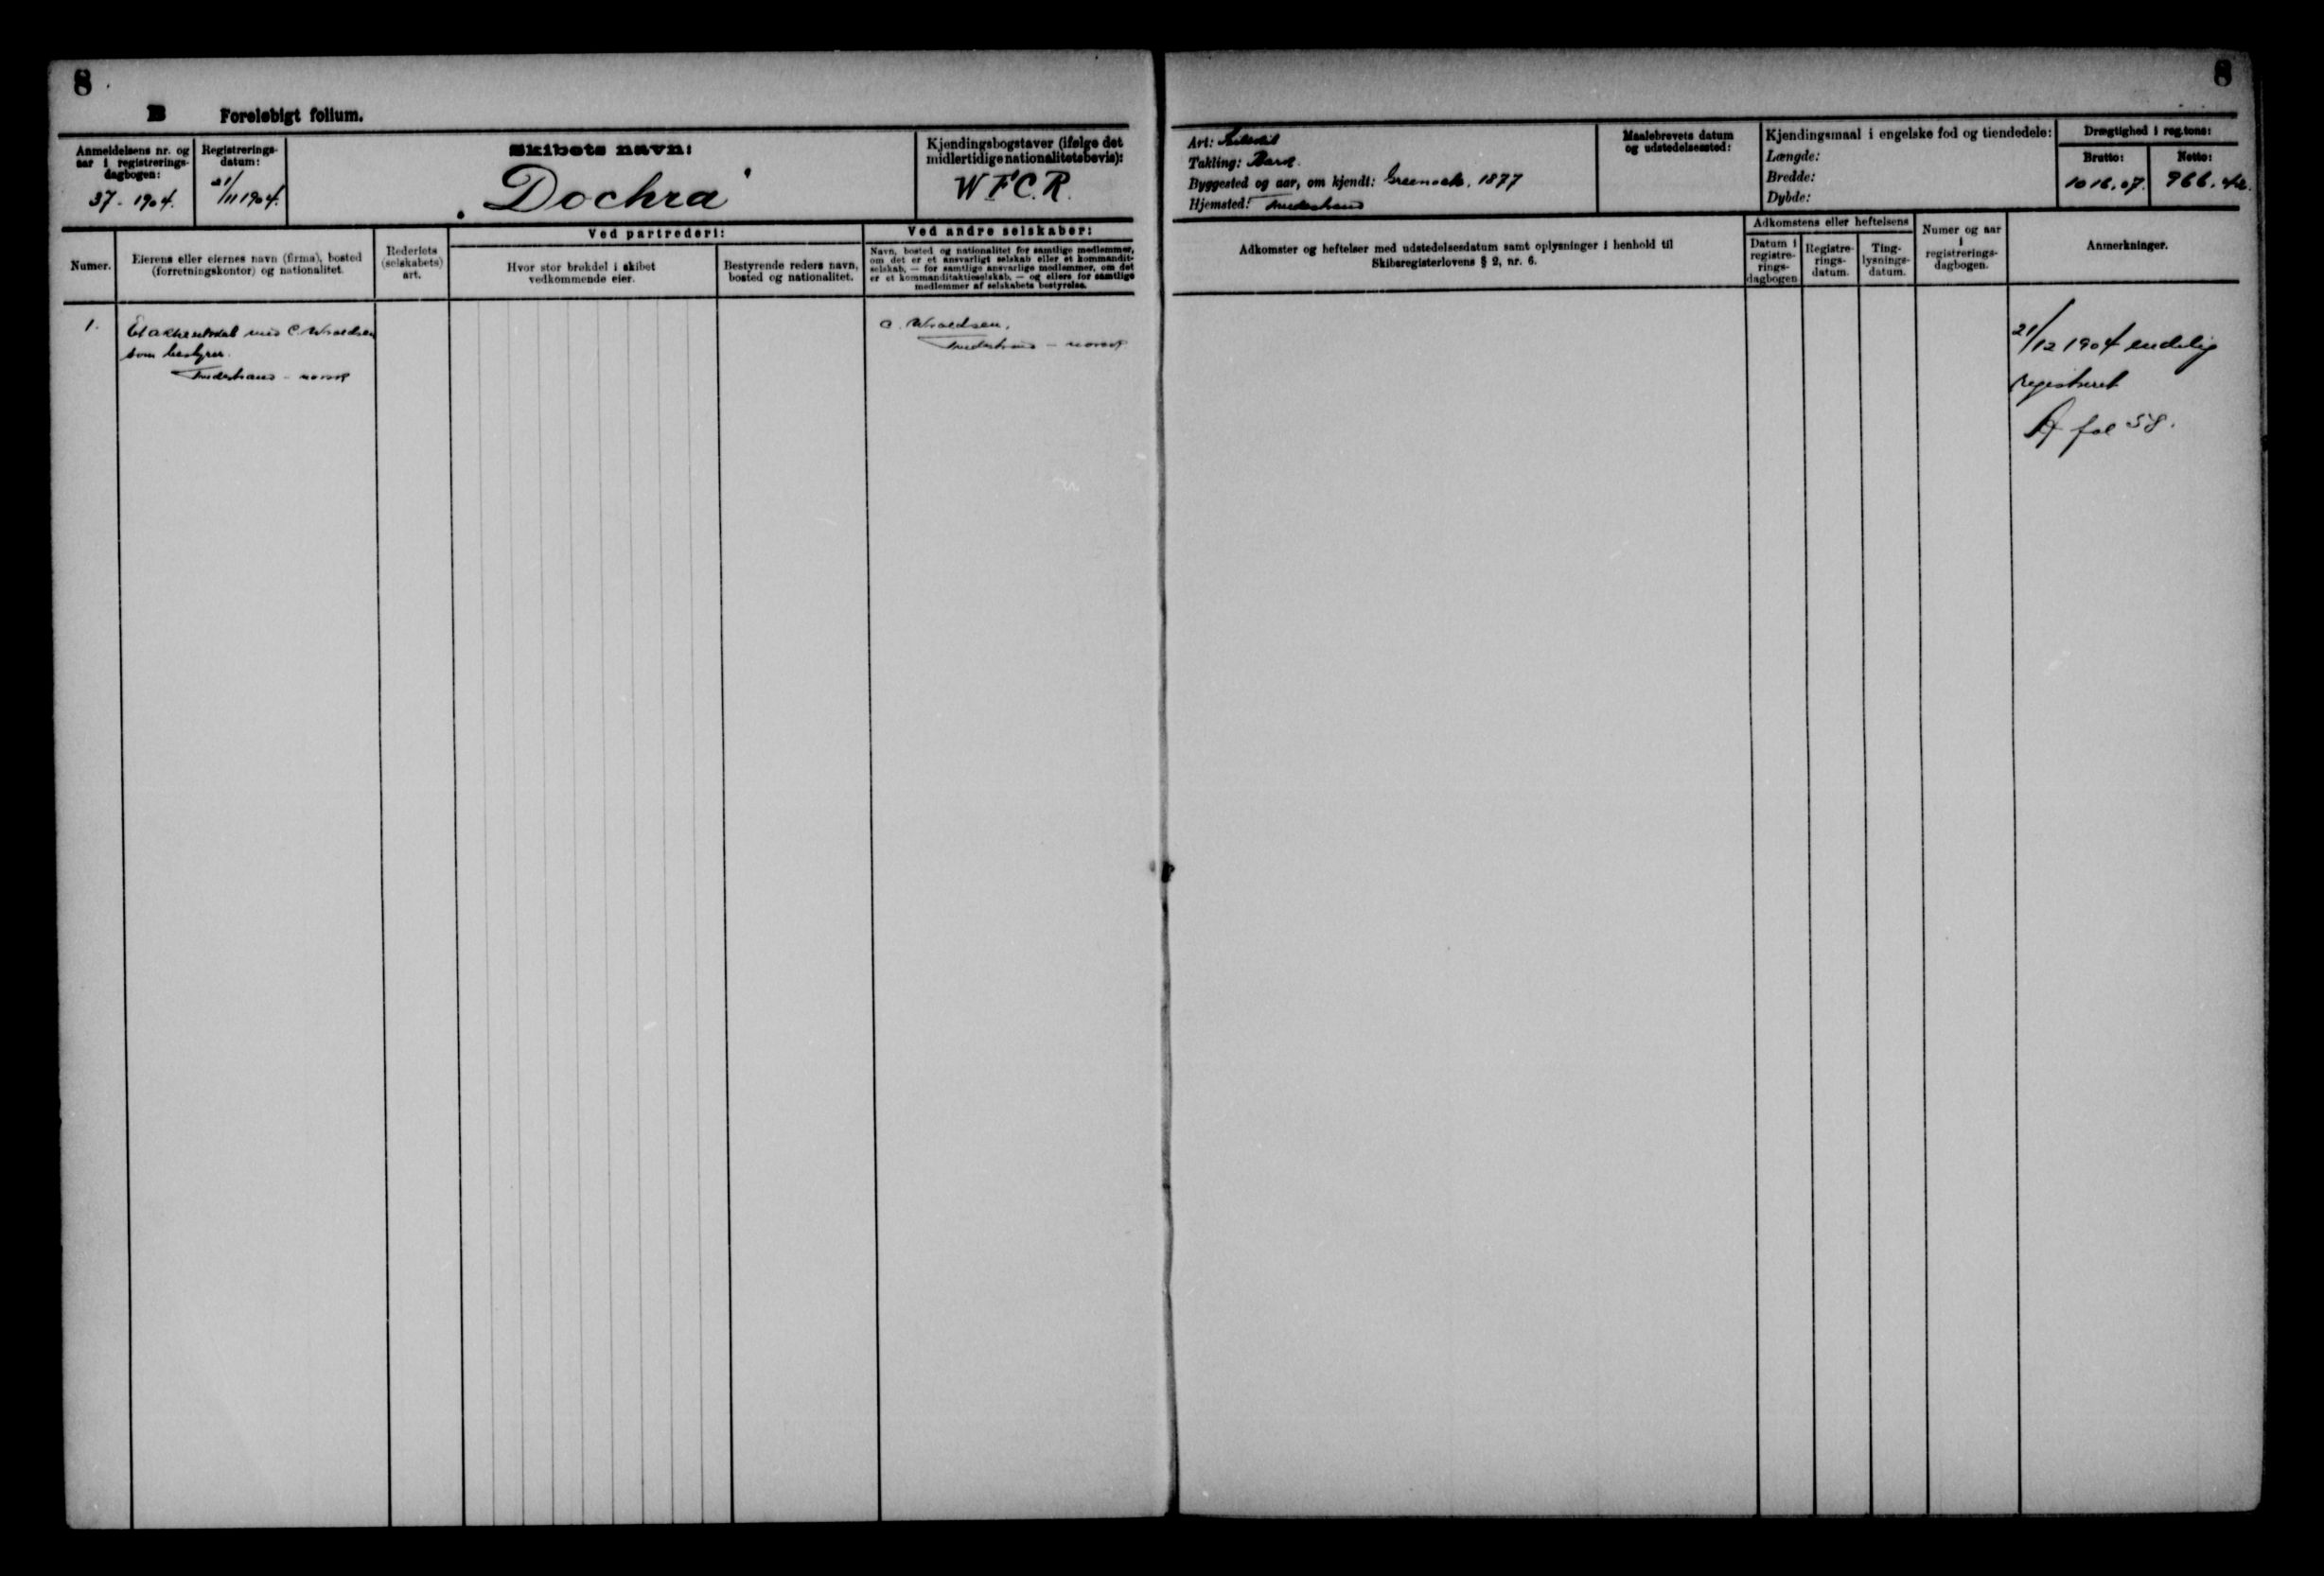 8
8
B Foreløbigt folium.
Anmeldelsens nr. og
aar i registrerings-
dagbogen:
37 - 1904.
Registrerings-
datum:
21/11 1904.
Skibets navn:
"Dochra"
Kjendingsbogstaver (ifølge det
midlertidige nationalitetsbevis):
W.F.C.R.
Numer.
Eierens eller eiernes navn (firma), bosted
(forretningskontor) og nationalitet.
Rederiets
(selskabets)
art.
Ved partrederi:
Hvor stor brøkdel i skibet
vedkommende eier.
Bestyrende reders navn,
bosted og nationalitet.
Ved andre selskaber:
Navn, bosted og nationalitet for samtlige medlemmer,
om det er et ansvarligt selskab eller et kommandit-
selskab, — for samtlige ansvarlige medlemmer, om det
er et kommanditaktieselskab, — og ellers for samtlige
medlemmer af selskabets bestyrelse.
1.
Et aktieselskab med C. Wroldsen
som bestyrer.
Tvedestrand - norsk
C. Wroldsen,
Tvedestrand - norsk
Art:
Takling: Bark.
Byggested og aar, om kjendt: Greenock, 1877
Hjemsted: Tvedestrand
Maalebrevets datum
og udstedelsessted:
Kjendingsmaal i engelske fod og tiendedele:
Længde:
Bredde:
Dybde:
Drægtighed i reg.tons:
Brutto:
1016.07.
Netto:
966.42.
Adkomster og heftelser med udstedelsesdatum samt oplysninger i henhold til
Skibsregisterlovens § 2, nr. 6.
Adkomstens eller heftelsens
Datum i
registre-
rings-
dagbogen
Registre-
rings-
datum.
Ting-
lysnings-
datum.
Numer og aar
i
registrerings-
dagbogen.
Anmerkninger.
21/12 1904 endelig
registreret
A fol 58.